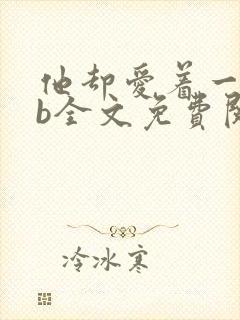 他却爱着一
b全文免費閱
冷冰寒